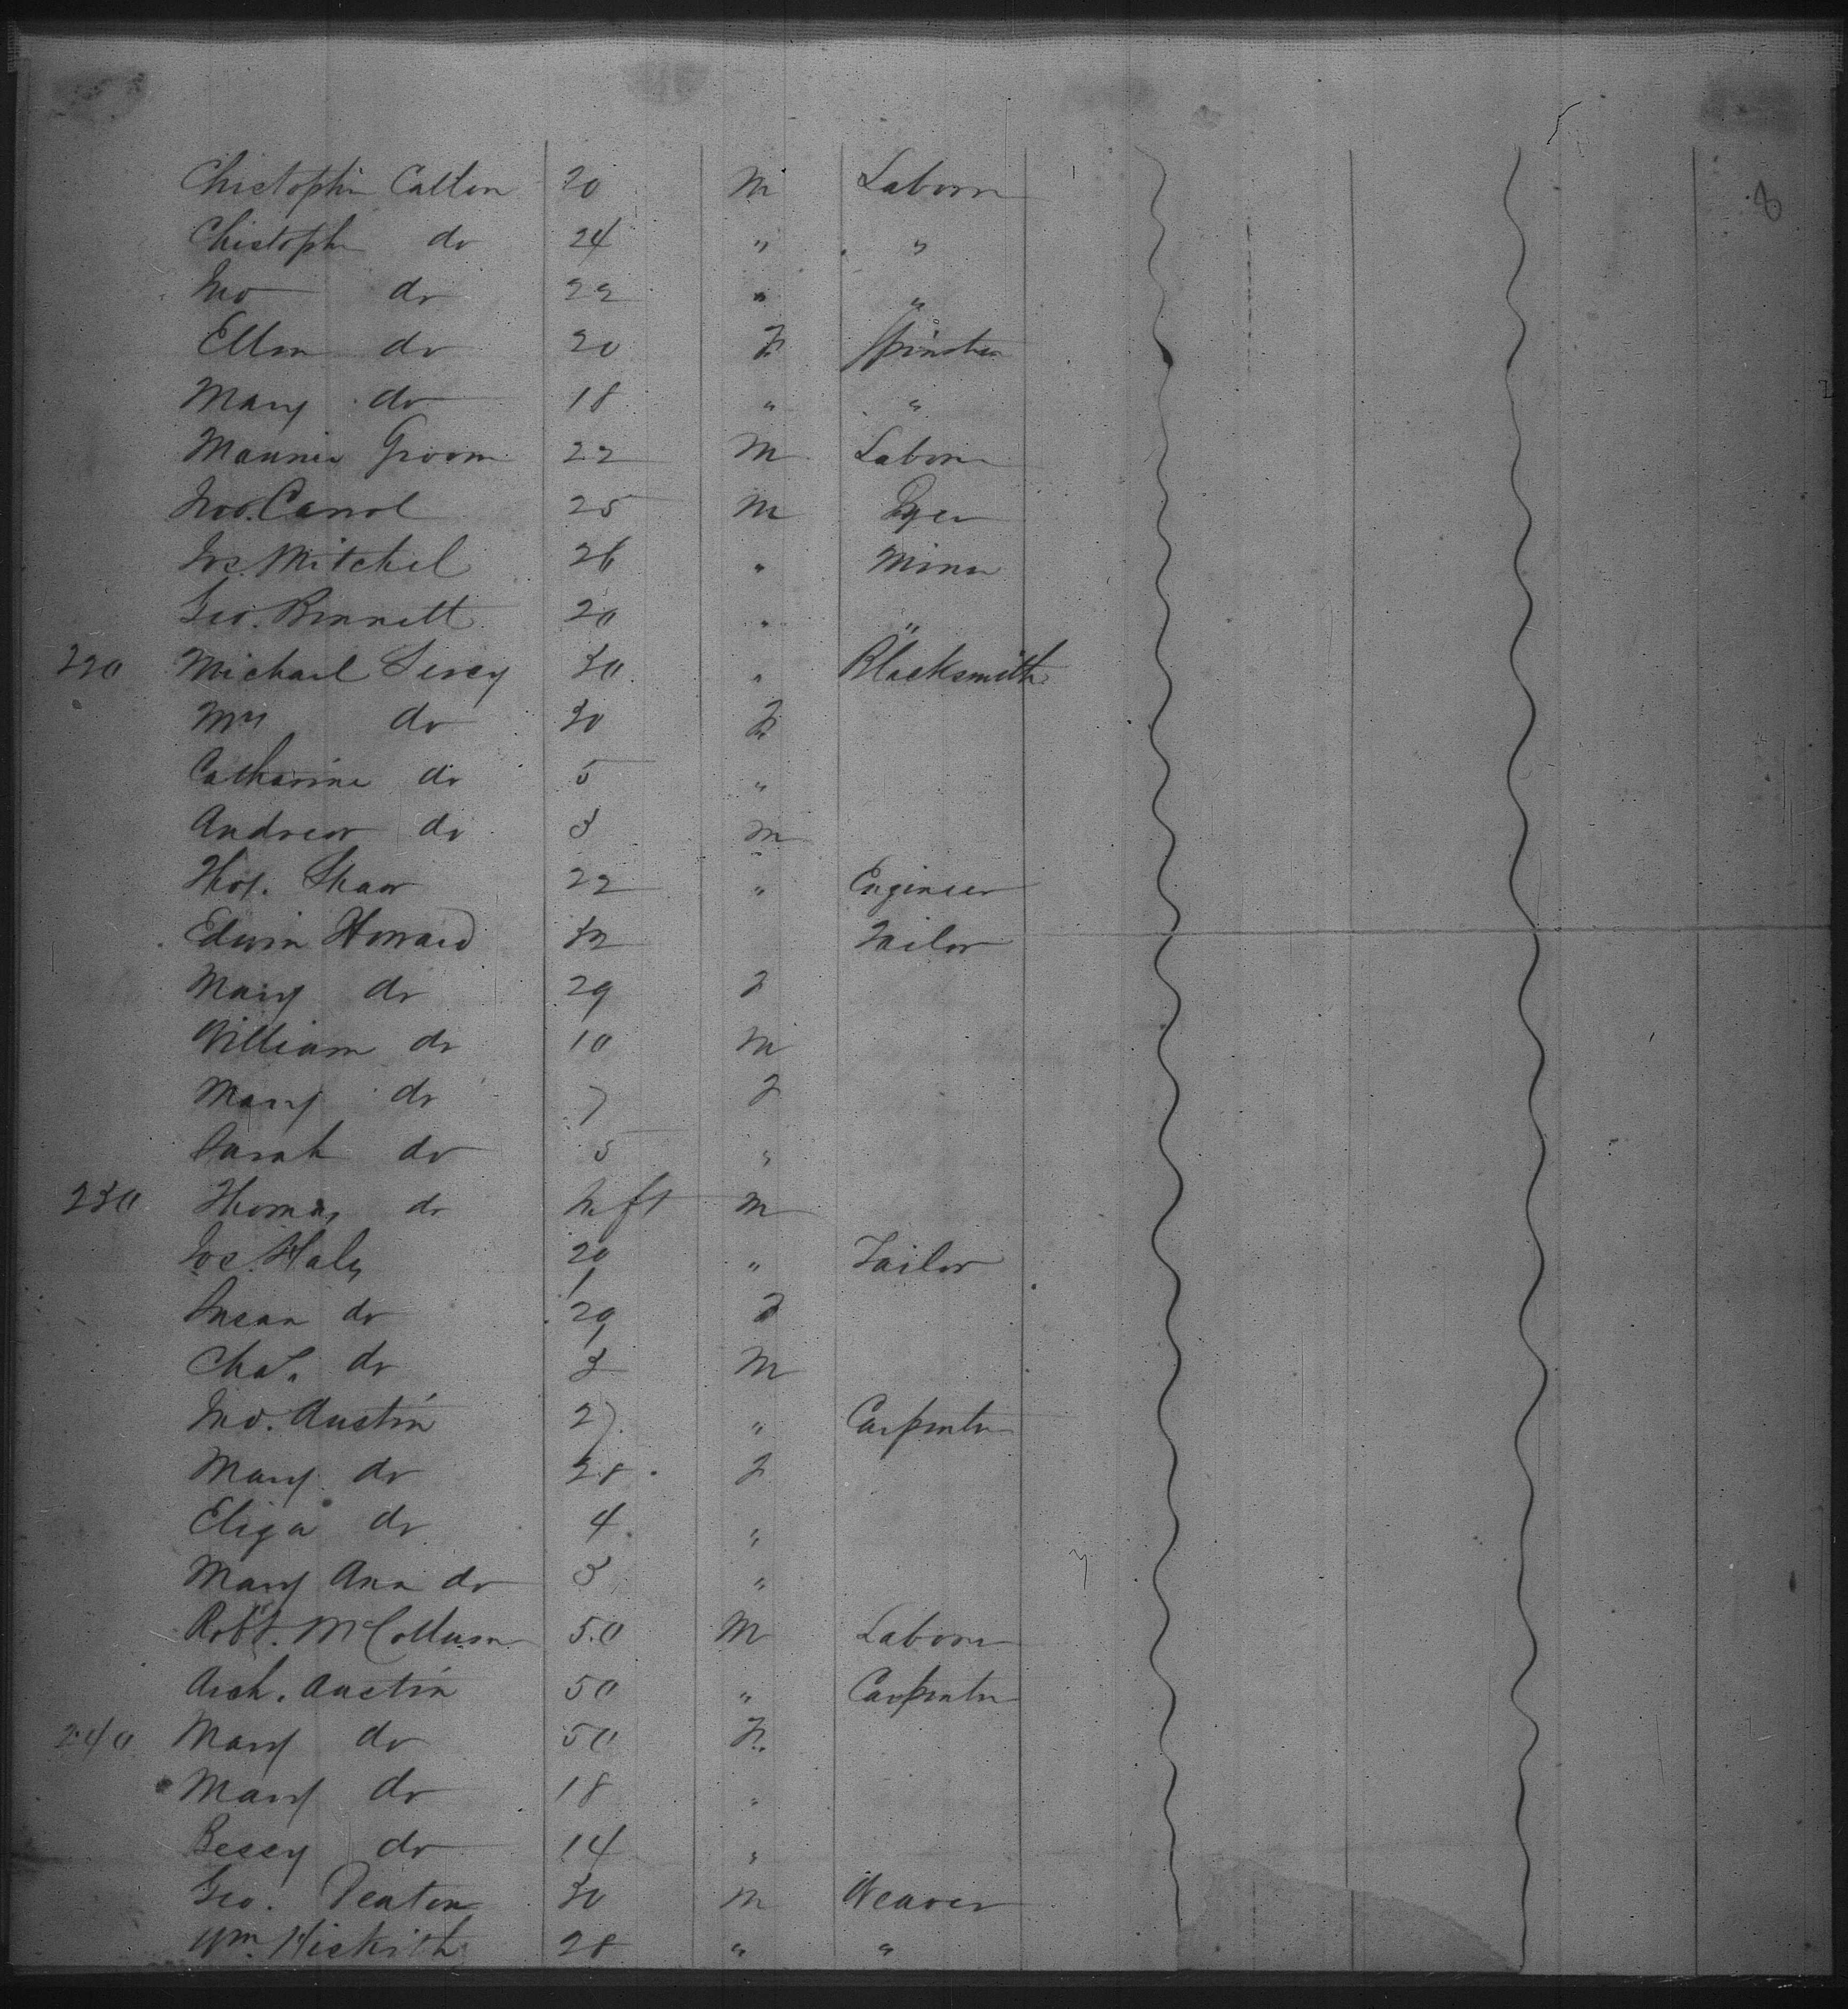 8
Christopher Calton 20 M Laborer
Christopher do 24 " "
Jno do 22 " "
Ellen do 20 F Spinster
Mary do 18 " "
Groom 22 M Laborer
Jno. Carrol 25 M Dyer
Jos. Mitchel 26 " Miner
Geo. Bennett 20 " "
220 Michael 30 " Blacksmith
Mrs do 30 F
Catharine do 5 "
Andrew do 3 M
Thos. Shaw 22 " Engineer
Edwin Howard 32 Tailor
Mary do 29 F
William do 10 M
Mary do 7 F
Sarah do 5 "
230 Thomas do Inft M
Jos. Haly 29 " Tailor
Susan do 29 F
Chas. do 3 M
Jno. Austin 27 " Carpenter
Mary do 28 F
Eliza do 4 "
Mary Ann do 3 "
Robt. McCollum 50 M Laborer
Arch. Austin 50 " Carpenter
240 Mary do 50 F.
Mary do 18 "
Bessy do 14 "
Geo. Deaton 30 M Weaver
Wm. 28 " "